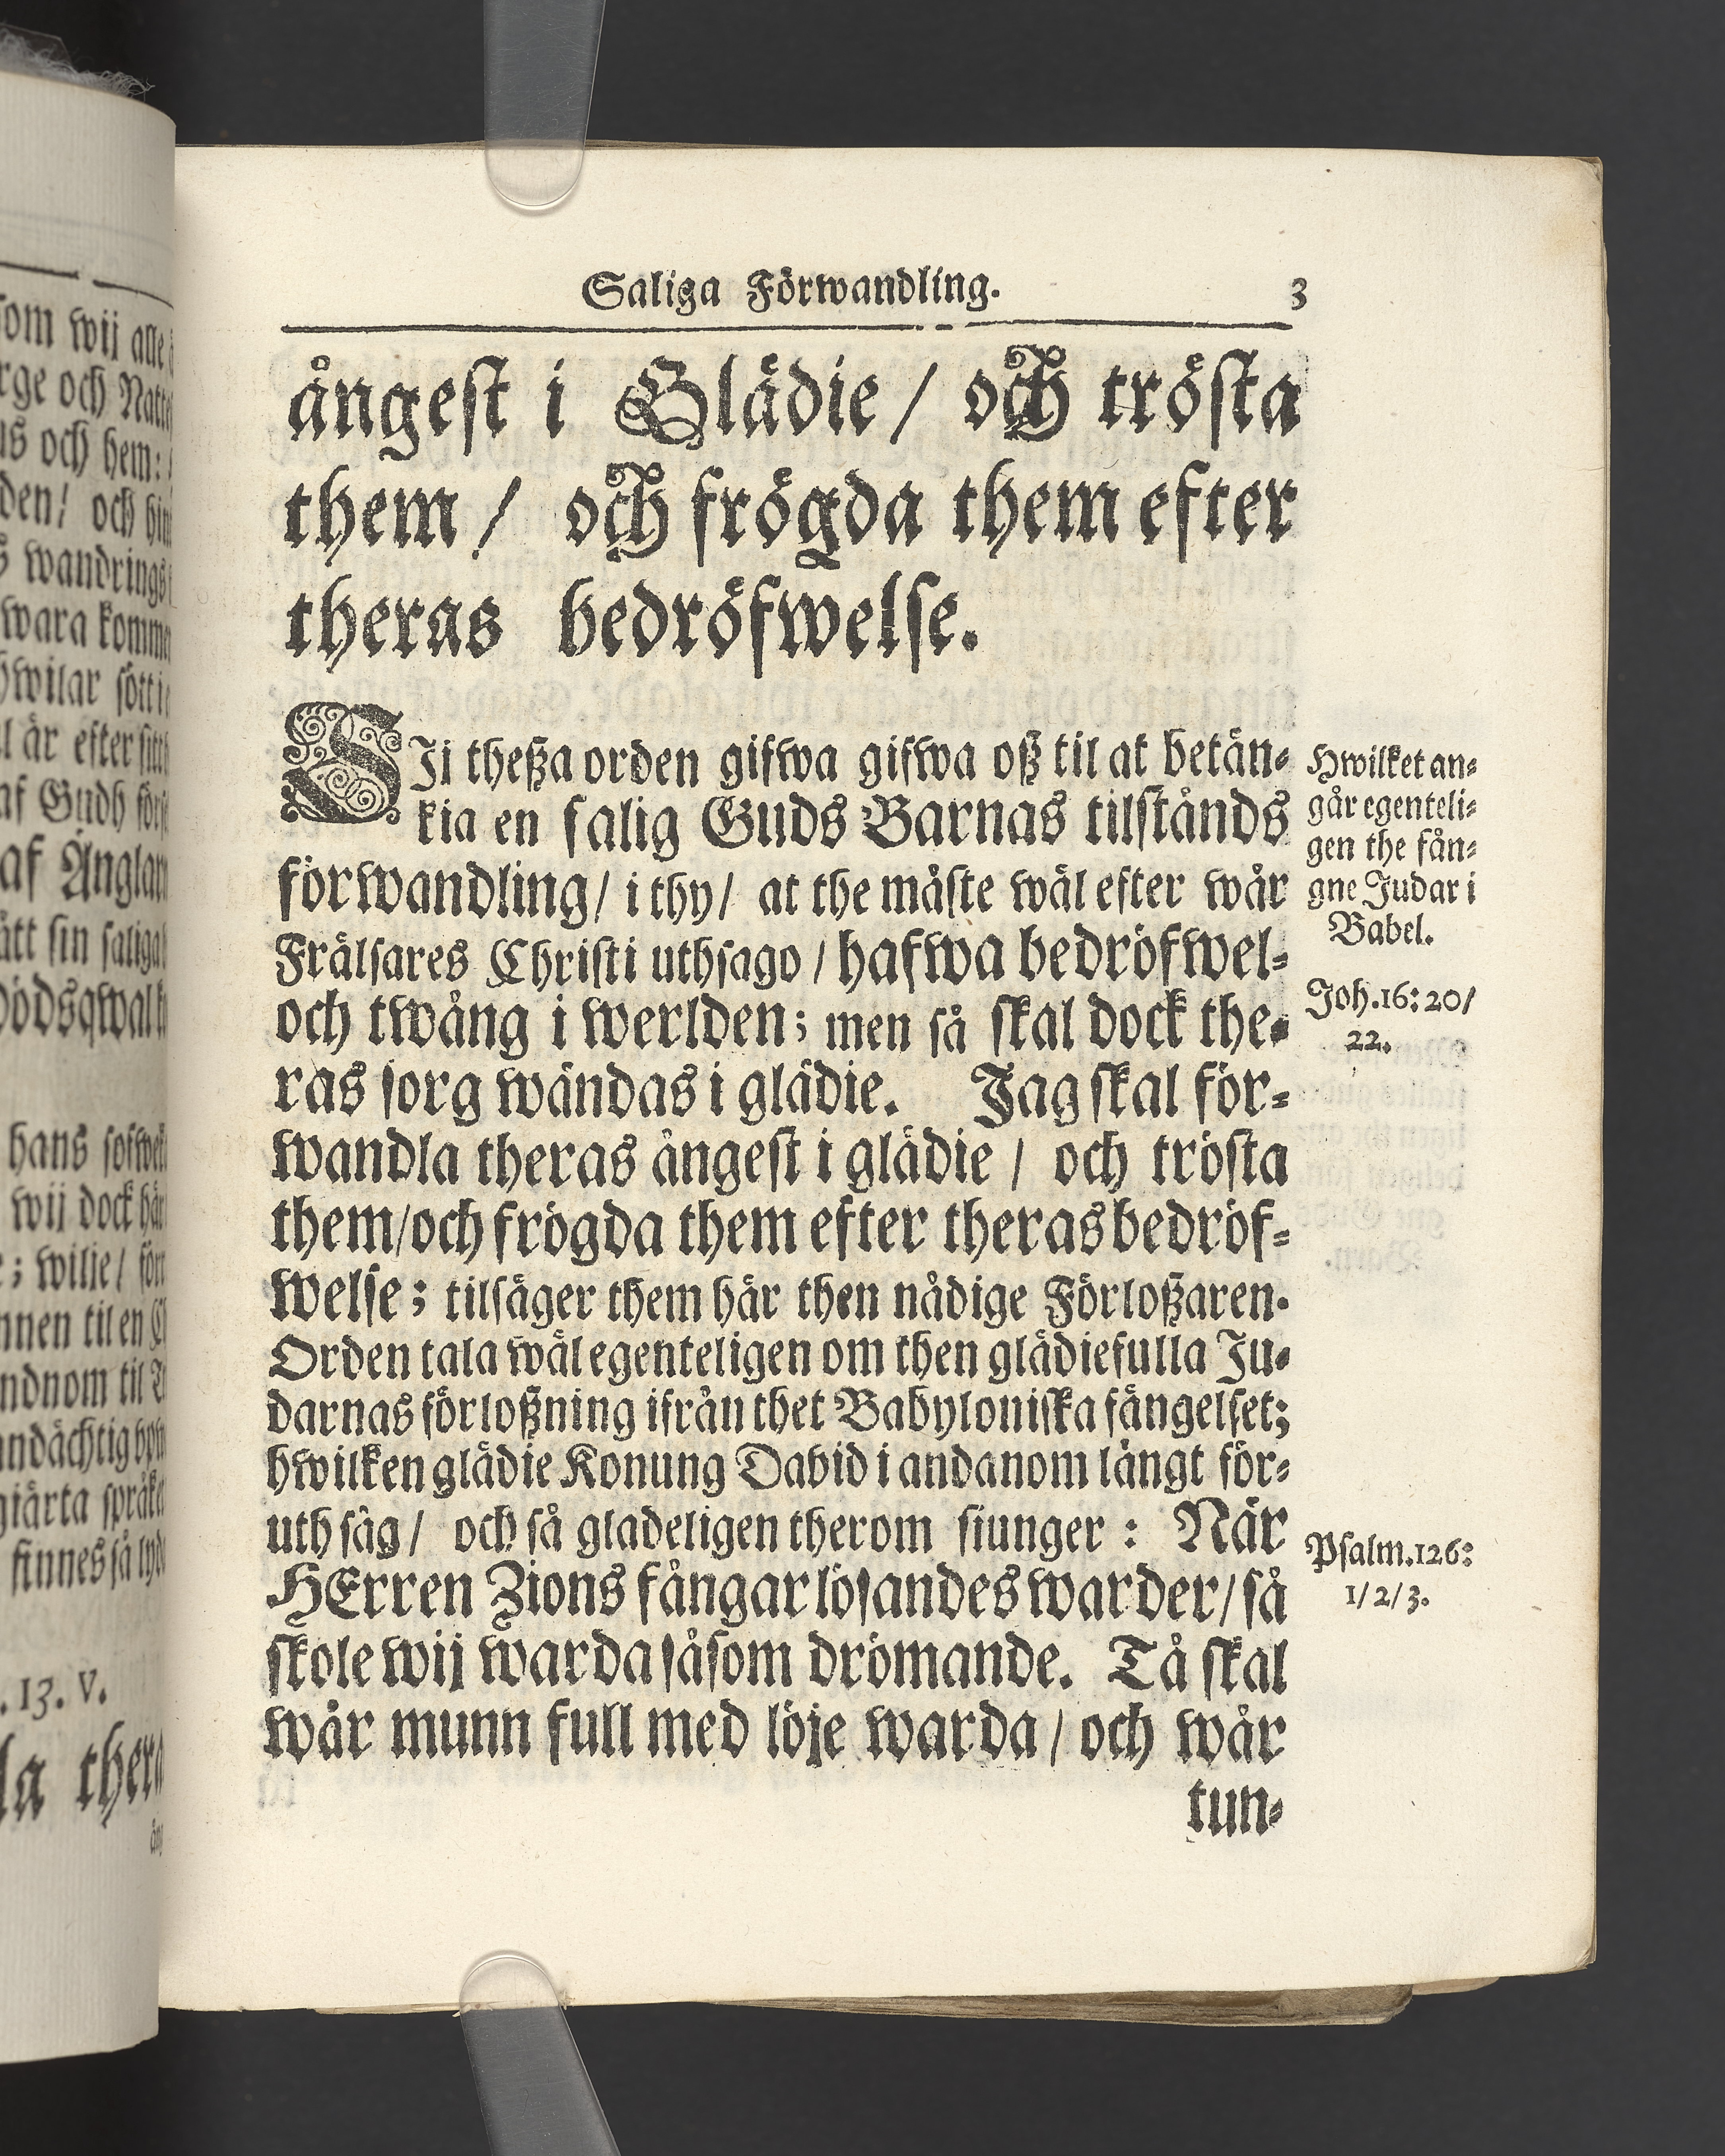 Saliga Förwandling. 3
ångest i Glädie / och trösta
them / och frögda them efter
theras bedröfwelse.
SIi theßa orden gifwa gifwa oß til at betän-
kia en salig Guds Barnas tilstånds
förwandling / i thy / at the måste wäl efter wår
Frälsares Christi uthsago / hafwa bedröfwel-
och twång i werlden; men så skal dock the-
ras sorg wändas i glädie. Jag skal för-
wandla theras ångest i glädie / och trösta
them / och frögda them efter theras bedröf-
welse; tilsäger them här then nådige Förloßaren.
Orden tala wäl egenteligen om then glädiefulla Ju-
darnas förloßning ifrån thet Babyloniska fängelset;
hwilken glädie Konung David i andanom långt för-
uth såg / och så gladeligen therom siunger : När
HErren Zions fångar lösandes warder / så
skole wij warda såsom drömande. Tå skal
wår munn full med löje warda / och wår
tun-
Hwilket an-
går egenteli-
gen the fån-
gne Judar i
Babel.
Joh. 16: 20/
22.
Psalm. 126:
1/2/3.
som wij alle
och Natte
och hem:
och
wandrings
wara komma
hwilar
är efter
af Gudh
af Änglar
sin saliga
hans
wij dock här
; wilje /
til en
til
finnes så
. 13. v.
la thera